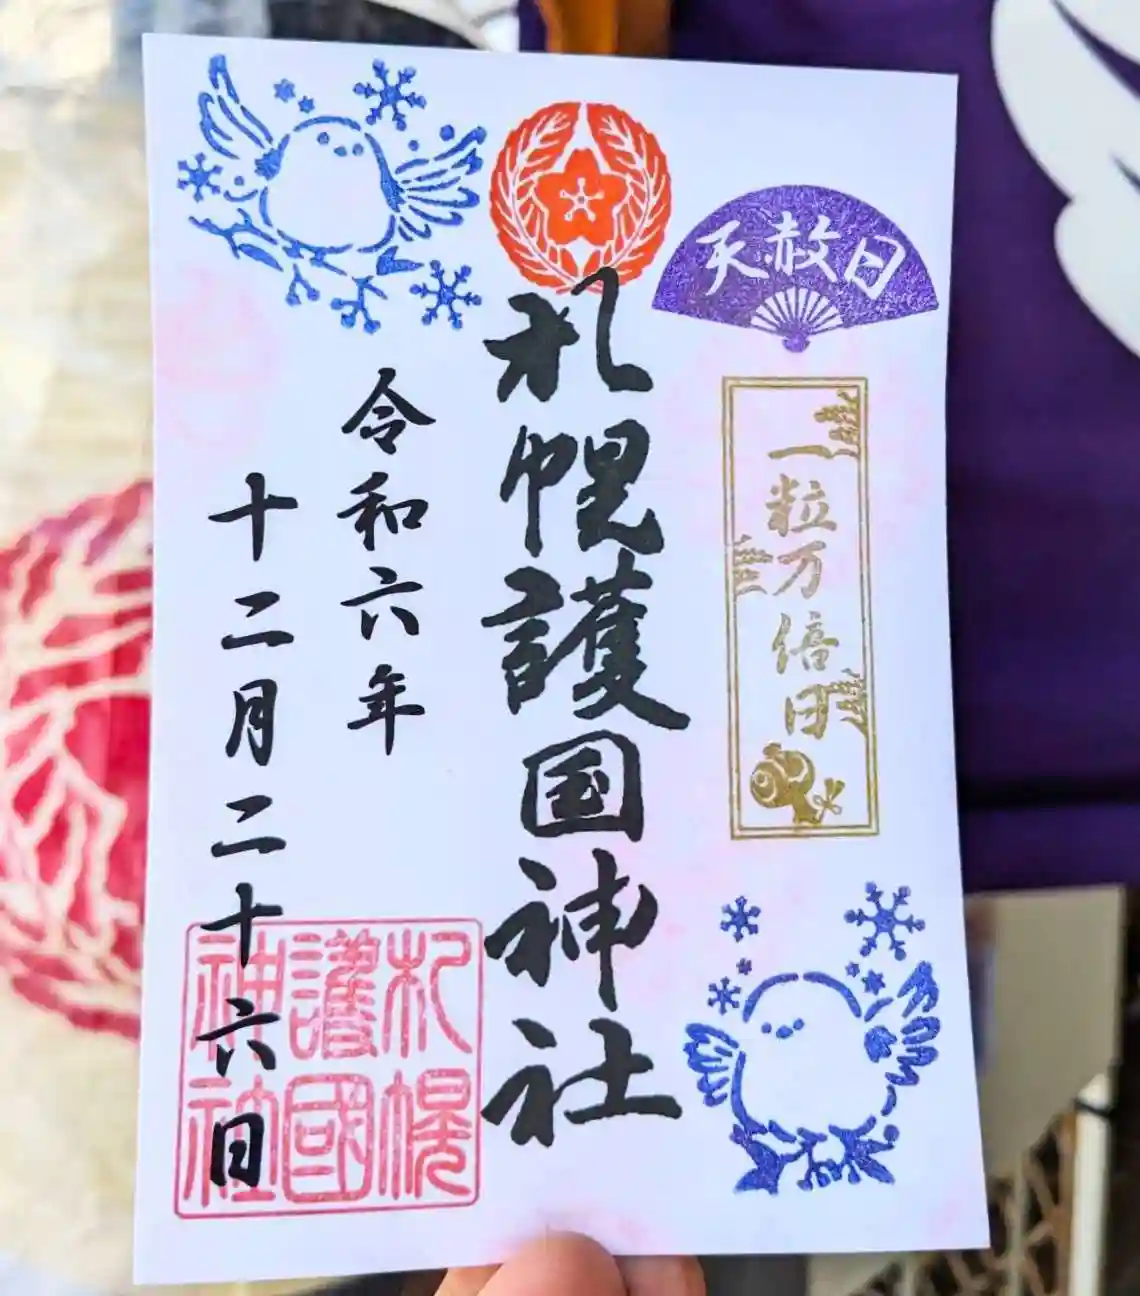 天赦日
一粒万倍日
札幌護国神社
令和六年
十二月二十六日
札幌
護國
神社